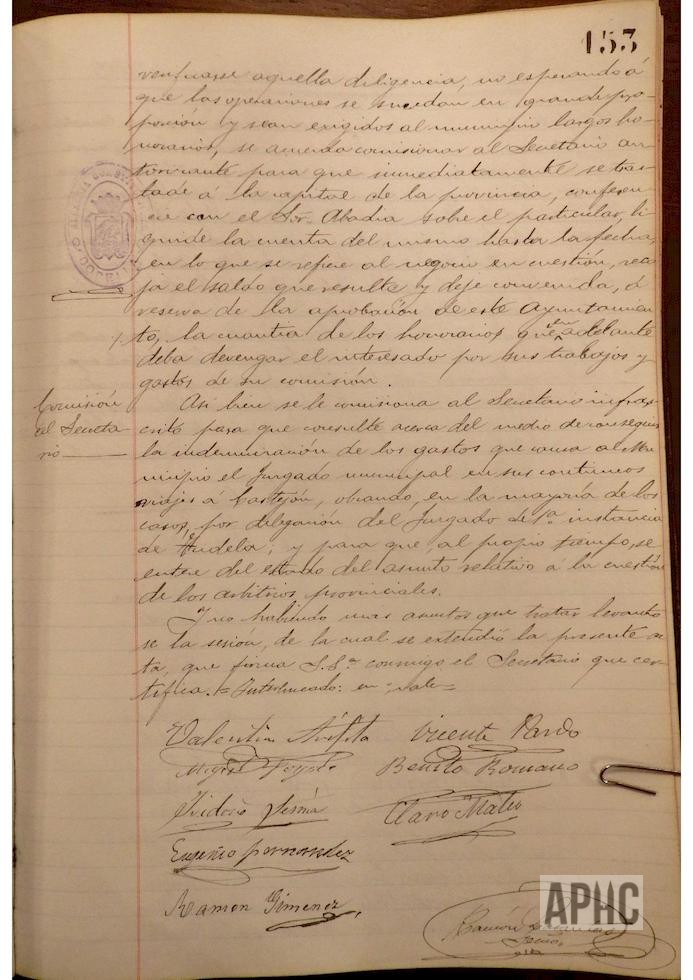 153
aquella diligencia, no esperando á
que las operaciones se sucedan en grande pro-
porcion y sean exigidos al municipio largos ho-
norarios, se acuerda comisionar al Secretario au-
torizante para que inmediatamente se tras-
lade á la capital de la provincia, conferen-
cie con el Sor. Abadia sobre el particular, li-
quide la cuenta del mismo hasta la fecha,
en lo que se refiere al negocio en cuestión, reco-
ja el saldo que resulte y deje convenida, á
reserva de la aprobación de este Ayuntamien-
to, la cuantia de los honorarios que en adelante
deba devengar el interesado por sus trabajos y
gastos de su comisión.
Comisión
al Secreta
rio
Asi bien se le comisiona al Secretario infras-
crito para que consulte acerca del medio de conseguir
la indemnización de los gastos que causa al Mu-
nicipio el Juzgado municipal en sus continuos
viajes á Castejón, obrando, en la mayoría de los
casos, por delegación del Juzgado de 1a. instancia
de Tudela; y para que, al propio tiempo, se
entere del estado del asunto relativo á la cuestión
de los arbitrios provinciales.
Y no habiendo mas asuntos que tratar levantó
se la sesion, de la cual se extendió la presente ac-
ta, que firma S.S.a conmigo el Secretario que cer-
tifica. = Interlineado: en = vale =
Valentin Vicente Pardo
Miguel Benito Romano
Isidoro Sesma Claro Mateo
Eugenio Fernandez
Ramon Gimenez
Ramón
APHC